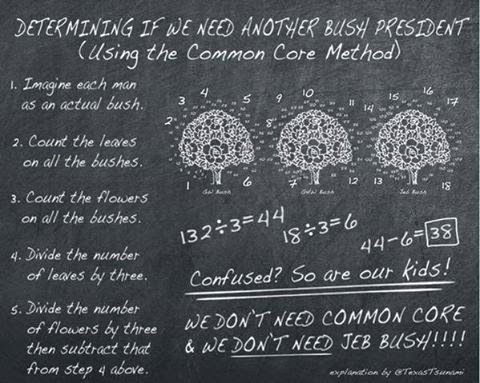 DETERMINING IF WE NEED ANOTHER BUSH PRESIDENT
(Using the Common Core Method)
1. Imagine each man
as an actual bush.
2. Count the leaves
on all the bushes.
3. Count the flowers
on all the bushes.
4. Divide the number
of leaves by three.
5. Divide the number
of flowers by three
then subtract that
from step 4 above.
1 2 3 4 5 6
7 8 9 10 11
13 14 15 16 17 18
Jeb Bush
132÷3=44
18÷3=6
44-6=38
Confused? So are our kids!
WE DON'T NEED COMMON CORE
& WE DON'T NEED JEB BUSH!!!!
explanation by @TexasTsunami